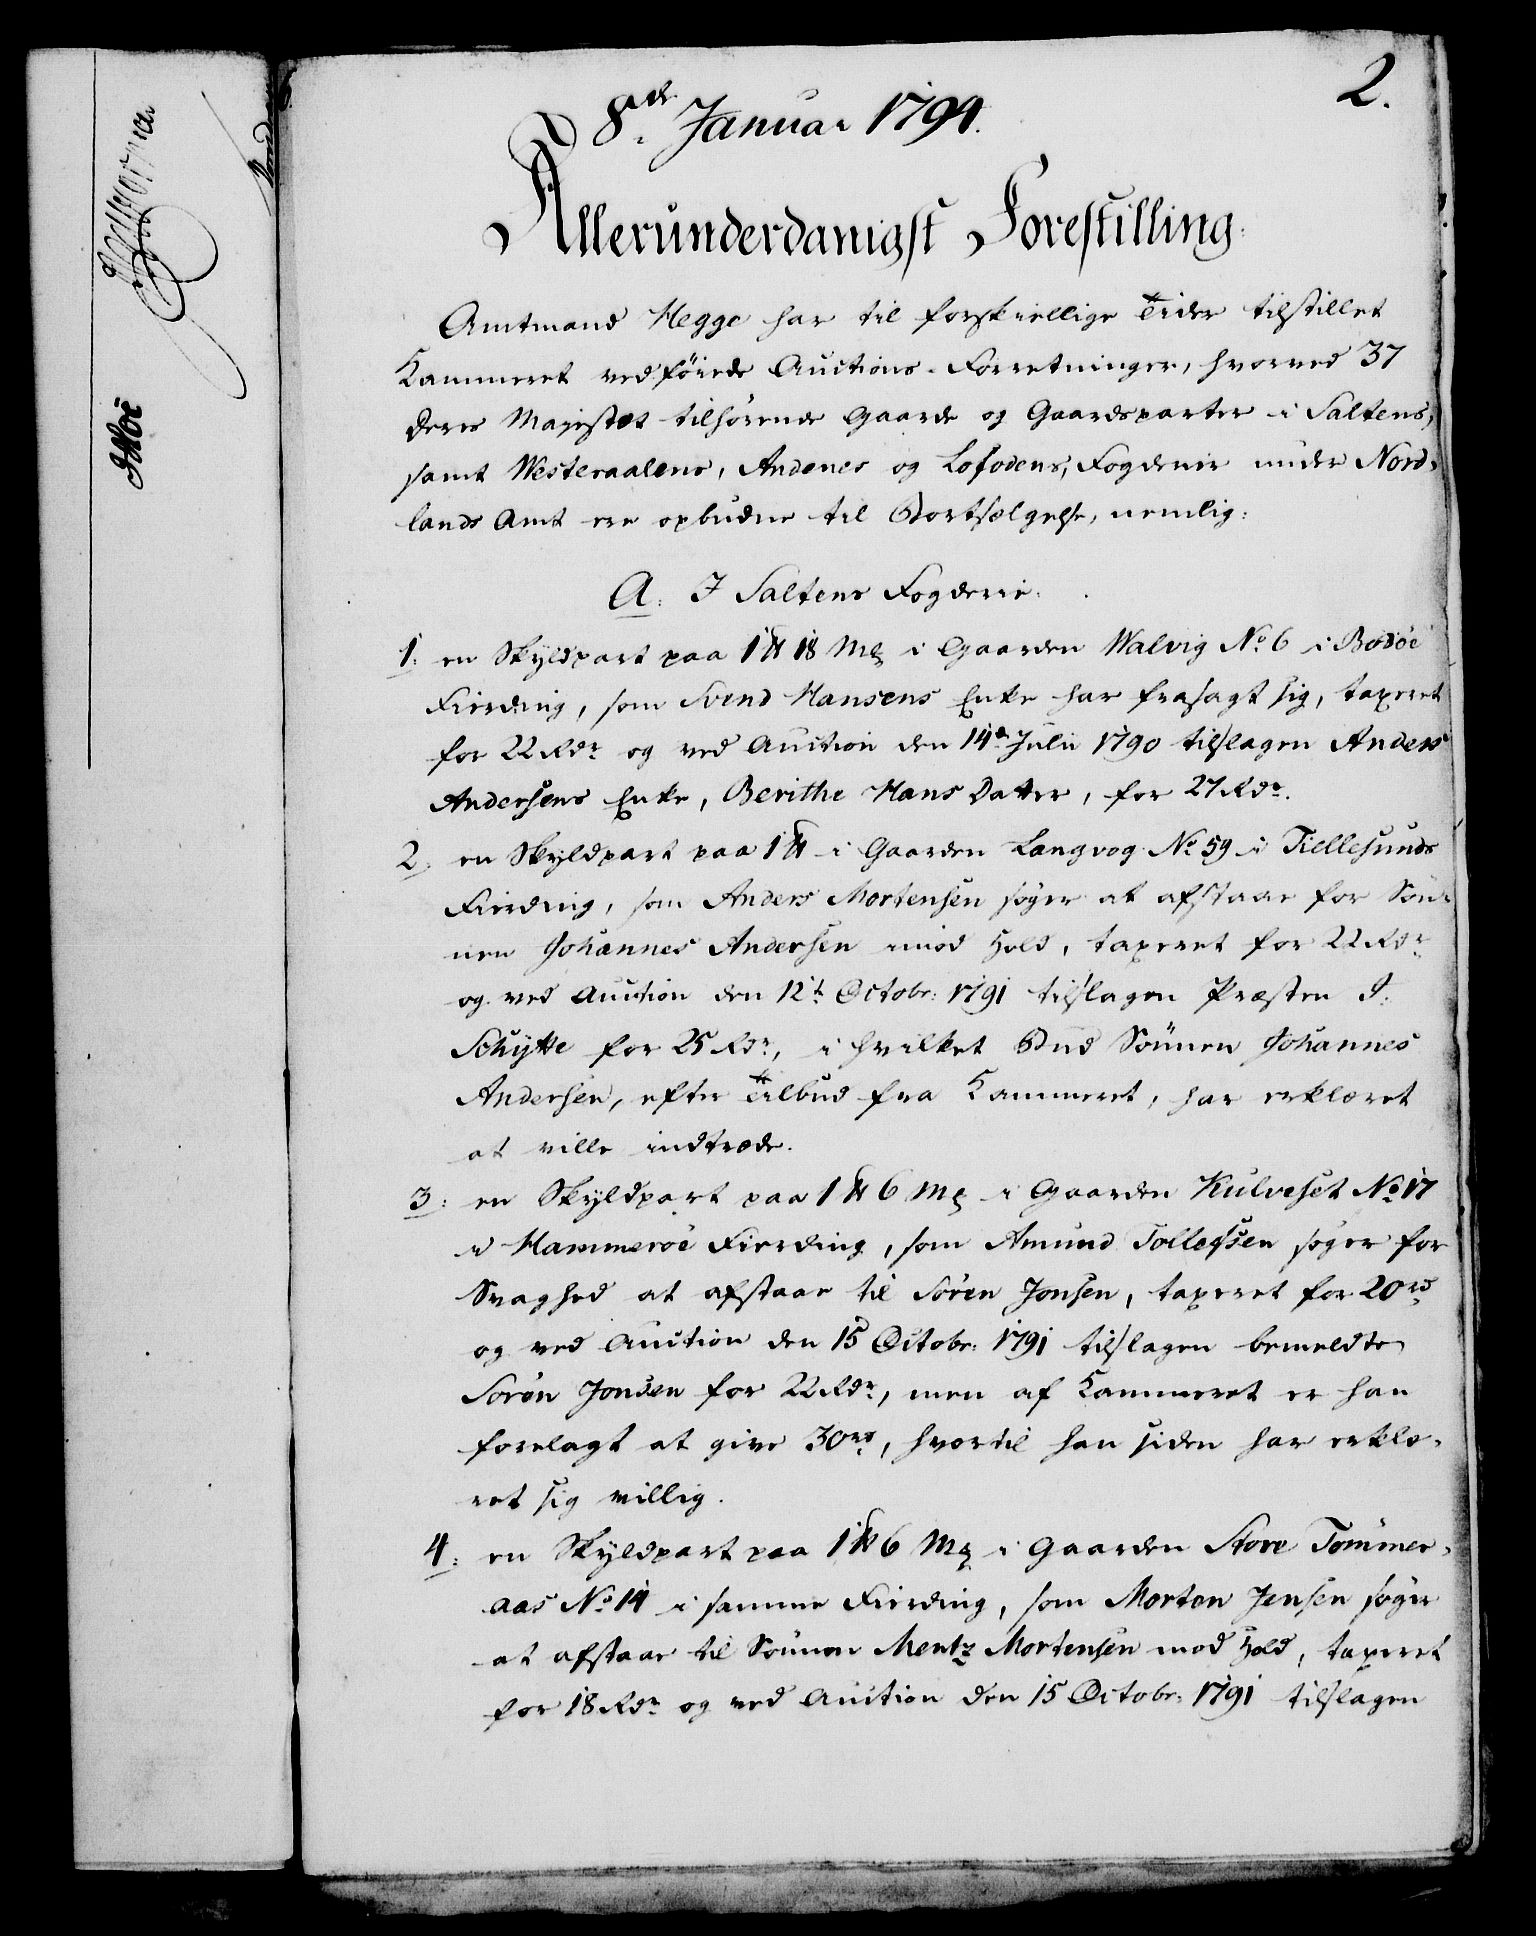 2.
8de Januar 1794.
Allerunderdanigst Forestilling.
Amtmand Hegge har til forskiellige Tider tilstillet
Kammeret vedføiede Auctions-Forretninger, hvorved 37
Deres Majestæt tilhørende Gaarde og Gaardsparter i Saltens,
samt Westeraalens, Andenes og Lofodens, Fogderie under Nord-
lands Amt ere opbudne til Bortsælgelse, nemlig:
A. I Saltens Fogderie.
1. en Skyldpart paa 1 ℔ 18 Mk i Gaarden Walvig No. 6 i Bodöe
Fierding, som Svend Hansens Enke har frasagt sig, taxeret
for 22 Rdr. og ved Auction den 14de Julii 1790 tilslagen Anders
Andersens Enke, Berithe Hans Datter, for 27 Rdr.
2. en Skyldpart paa 1 ℔ i Gaarden Langvog No. 59 i Tiellesunds
Fierding, som Anders Mortensen søger at afstaae for Søn-
nen Johannes Andersen imod Hold, taxeret for 22 Rdr.
og ved Auction den 12t Octobr: 1791 tilslagen Præsten J.
Schytte for 25 Rdr., i hvilket Bud Sønnen Johannes
Andersen, efter Tilbud fra Kammeret, har erklæret
at ville indtræde.
3: en Skyldpart paa 1 ℔ 6 Mk i Gaarden Kulveset No. 17
i Hammeröe Fierding, som Amund Tollefsen søger for
Svaghed at afstaae til Sören Jonsen, taxeret for 20 rd
og ved Auction den 15 Octobr: 1791 tilslagen bemeldte
Sørøn Jonsen for 22 Rdr., men af Kammeret er han
forelagt at give 30 rd, hvortil han siden har erklæ-
ret sig villig.
4: en Skyldpart paa 1 ℔ 6 Mk i Gaarden Store Tømmer-
aas No. 14 i samme Fierding, som Morten Jensen søger
at afstaae til Sønnen Mentz Mortensen mod Hold, taxeret
for 18 Rdr. og ved Auction den 15 Octobr: 1791 tilslagen